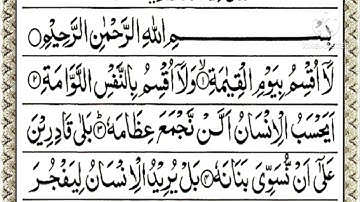 بِسْمِ اللهِ الرَّحْمٰنِ الرَّحِيْمِ
لَآ اُقْسِمُ بِيَوْمِ الْقِيٰمَةِ ۙ‏﴿۱﴾ وَلَآ اُقْسِمُ بِالنَّفْسِ اللَّوَّامَةِ ؕ‏﴿۲﴾
اَيَحْسَبُ الْاِنْسَانُ اَلَّنْ نَّجْمَعَ عِظَامَهٗ ؕ‏﴿۳﴾ بَلٰى قٰدِرِيْنَ
عَلٰٓى اَنْ نُّسَوِّىَ بَنَانَهٗ‏﴿۴﴾ بَلْ يُرِيْدُ الْاِنْسَانُ لِيَفْجُرَ